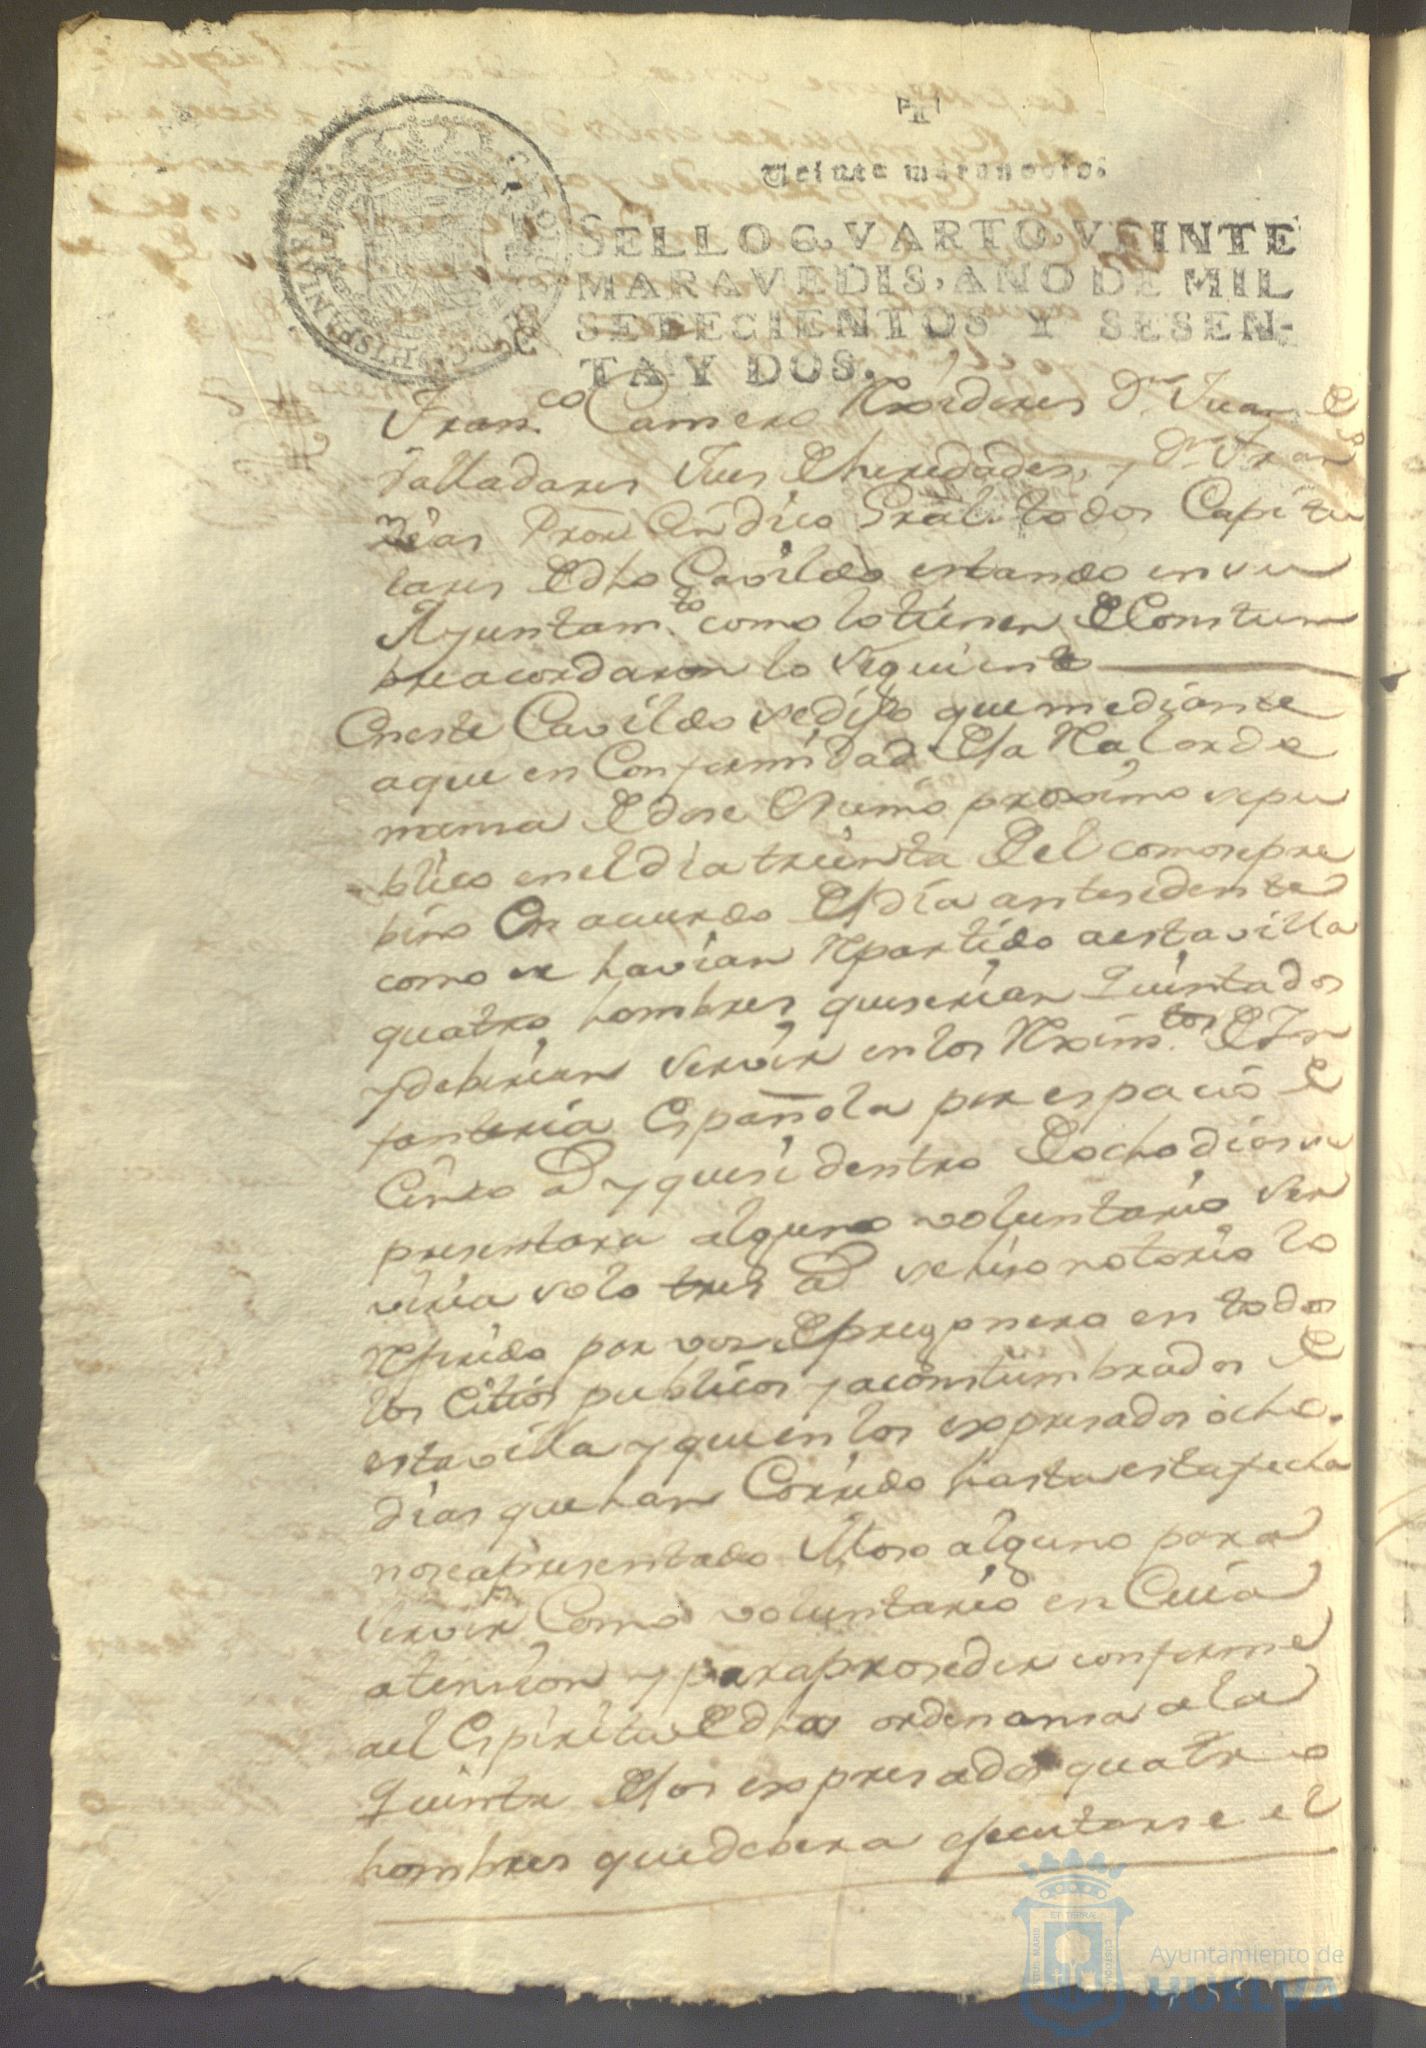 Veinte maravedis.
SELLO QVARTO, VEINTE
MARAVEDIS, AÑO DE MIL
SETECIENTOS Y SESEN-
TA Y DOS.
Fran.co Camero Rexidores Dn Juan de
Valladares Jues de heredades, y Dn Fran
Dias Pror Sindico Gral. todos Capitu
lares de dho Cavildo estando en su
Ayuntam.to como lo tienen de Constum
bre acordaron lo siguiente
En este Cavildo se dijo que mediante
a que en Conformidad de la Rl orde
nansa de dose de Junio proximo se pu
blico en el dia treinta del como se pre
bino en acuerdo del dia antesedente
como se havian Rpartido a esta villa
quatro hombres que serian quintados
y deberian servir en los Rximtos de In
fanteria Española por espacio de
Cinco as y que si dentro de ocho dias se
presentara alguno voluntario ser
viria solo tres as se hiso notorio lo
Rferido por vos de pregonero en todos
los Citios publicos y acostumbrados de
esta villa y que en los expresados ocho
dias que han Corrido hasta esta fecha
no se a presentado Moso alguno para
servir Como voluntario en Cuia
atension y para proseder conforme
a el Espiritu de dha ordenansa a la
quinta de los expresados quatro
hombres que debera ejecutarse el
Ayuntamiento de
HUELVA